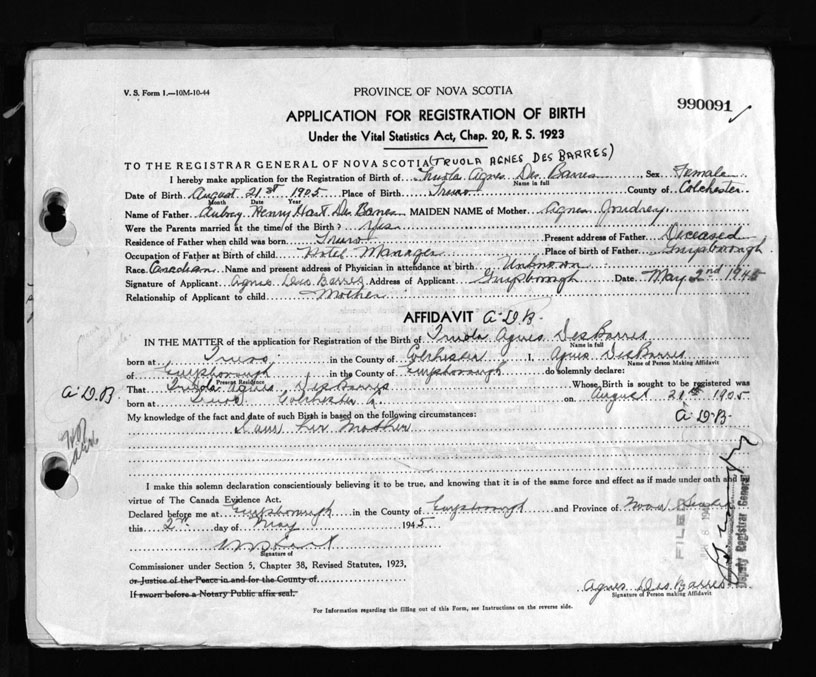 V. S. Form 1.—10M-10-44
PROVINCE OF NOVA SCOTIA
990091
APPLICATION FOR REGISTRATION OF BIRTH
Under the Vital Statistics Act, Chap. 20, R. S. 1923
TO THE REGISTRAR GENERAL OF NOVA SCOTIA (TRUOLA AGNES DES BARRES)
I hereby make application for the Registration of Birth of Truola Agnes Des Barres Sex Female
Name in full
Date of Birth August 21st 1905 Place of Birth Truro County of Colchester
Month Date Year
Name of Father Aubrey Henry Hart Des Barres MAIDEN NAME of Mother Agnes Joudrey
Were the Parents married at the time of the Birth? Yes
Residence of Father when child was born Truro Present address of Father Deceased
Occupation of Father at Birth of child Hotel Manager Place of birth of Father Guysborough
Race Canadian Name and present address of Physician in attendance at birth Unknown
Signature of Applicant Agnes Des Barres Address of Applicant Guysborough Date May 2nd 1945
Relationship of Applicant to child Mother
AFFIDAVIT A.D.B.
IN THE MATTER of the application for Registration of the Birth of Truola Agnes DesBarres
Name in full
born at Truro in the County of Colchester I, Agnes DesBarres
Name of Person Making Affidavit
of Guysborough in the County of Guysborough do solemnly declare:
Present Residence
A.D.B. That Truola Agnes DesBarres Whose Birth is sought to be registered was
born at Truro Colchester Co. on August 21st 1905
My knowledge of the fact and date of such Birth is based on the following circumstances: A.D.B.
I am her Mother
I make this solemn declaration conscientiously believing it to be true, and knowing that it is of the same force and effect as if made under oath and by
virtue of The Canada Evidence Act.
Declared before me at Guysborough in the County of Guysborough and Province of Nova Scotia
this 2nd day of May 1945
Signature of
Commissioner under Section 5, Chapter 38, Revised Statutes, 1923,
or Justice of the Peace in and for the County of
If sworn before a Notary Public affix seal.
Agnes DesBarres
Signature of Person making Affidavit
FILED
Deputy Registrar General
For Information regarding the filling out of this Form, see Instructions on the reverse side.